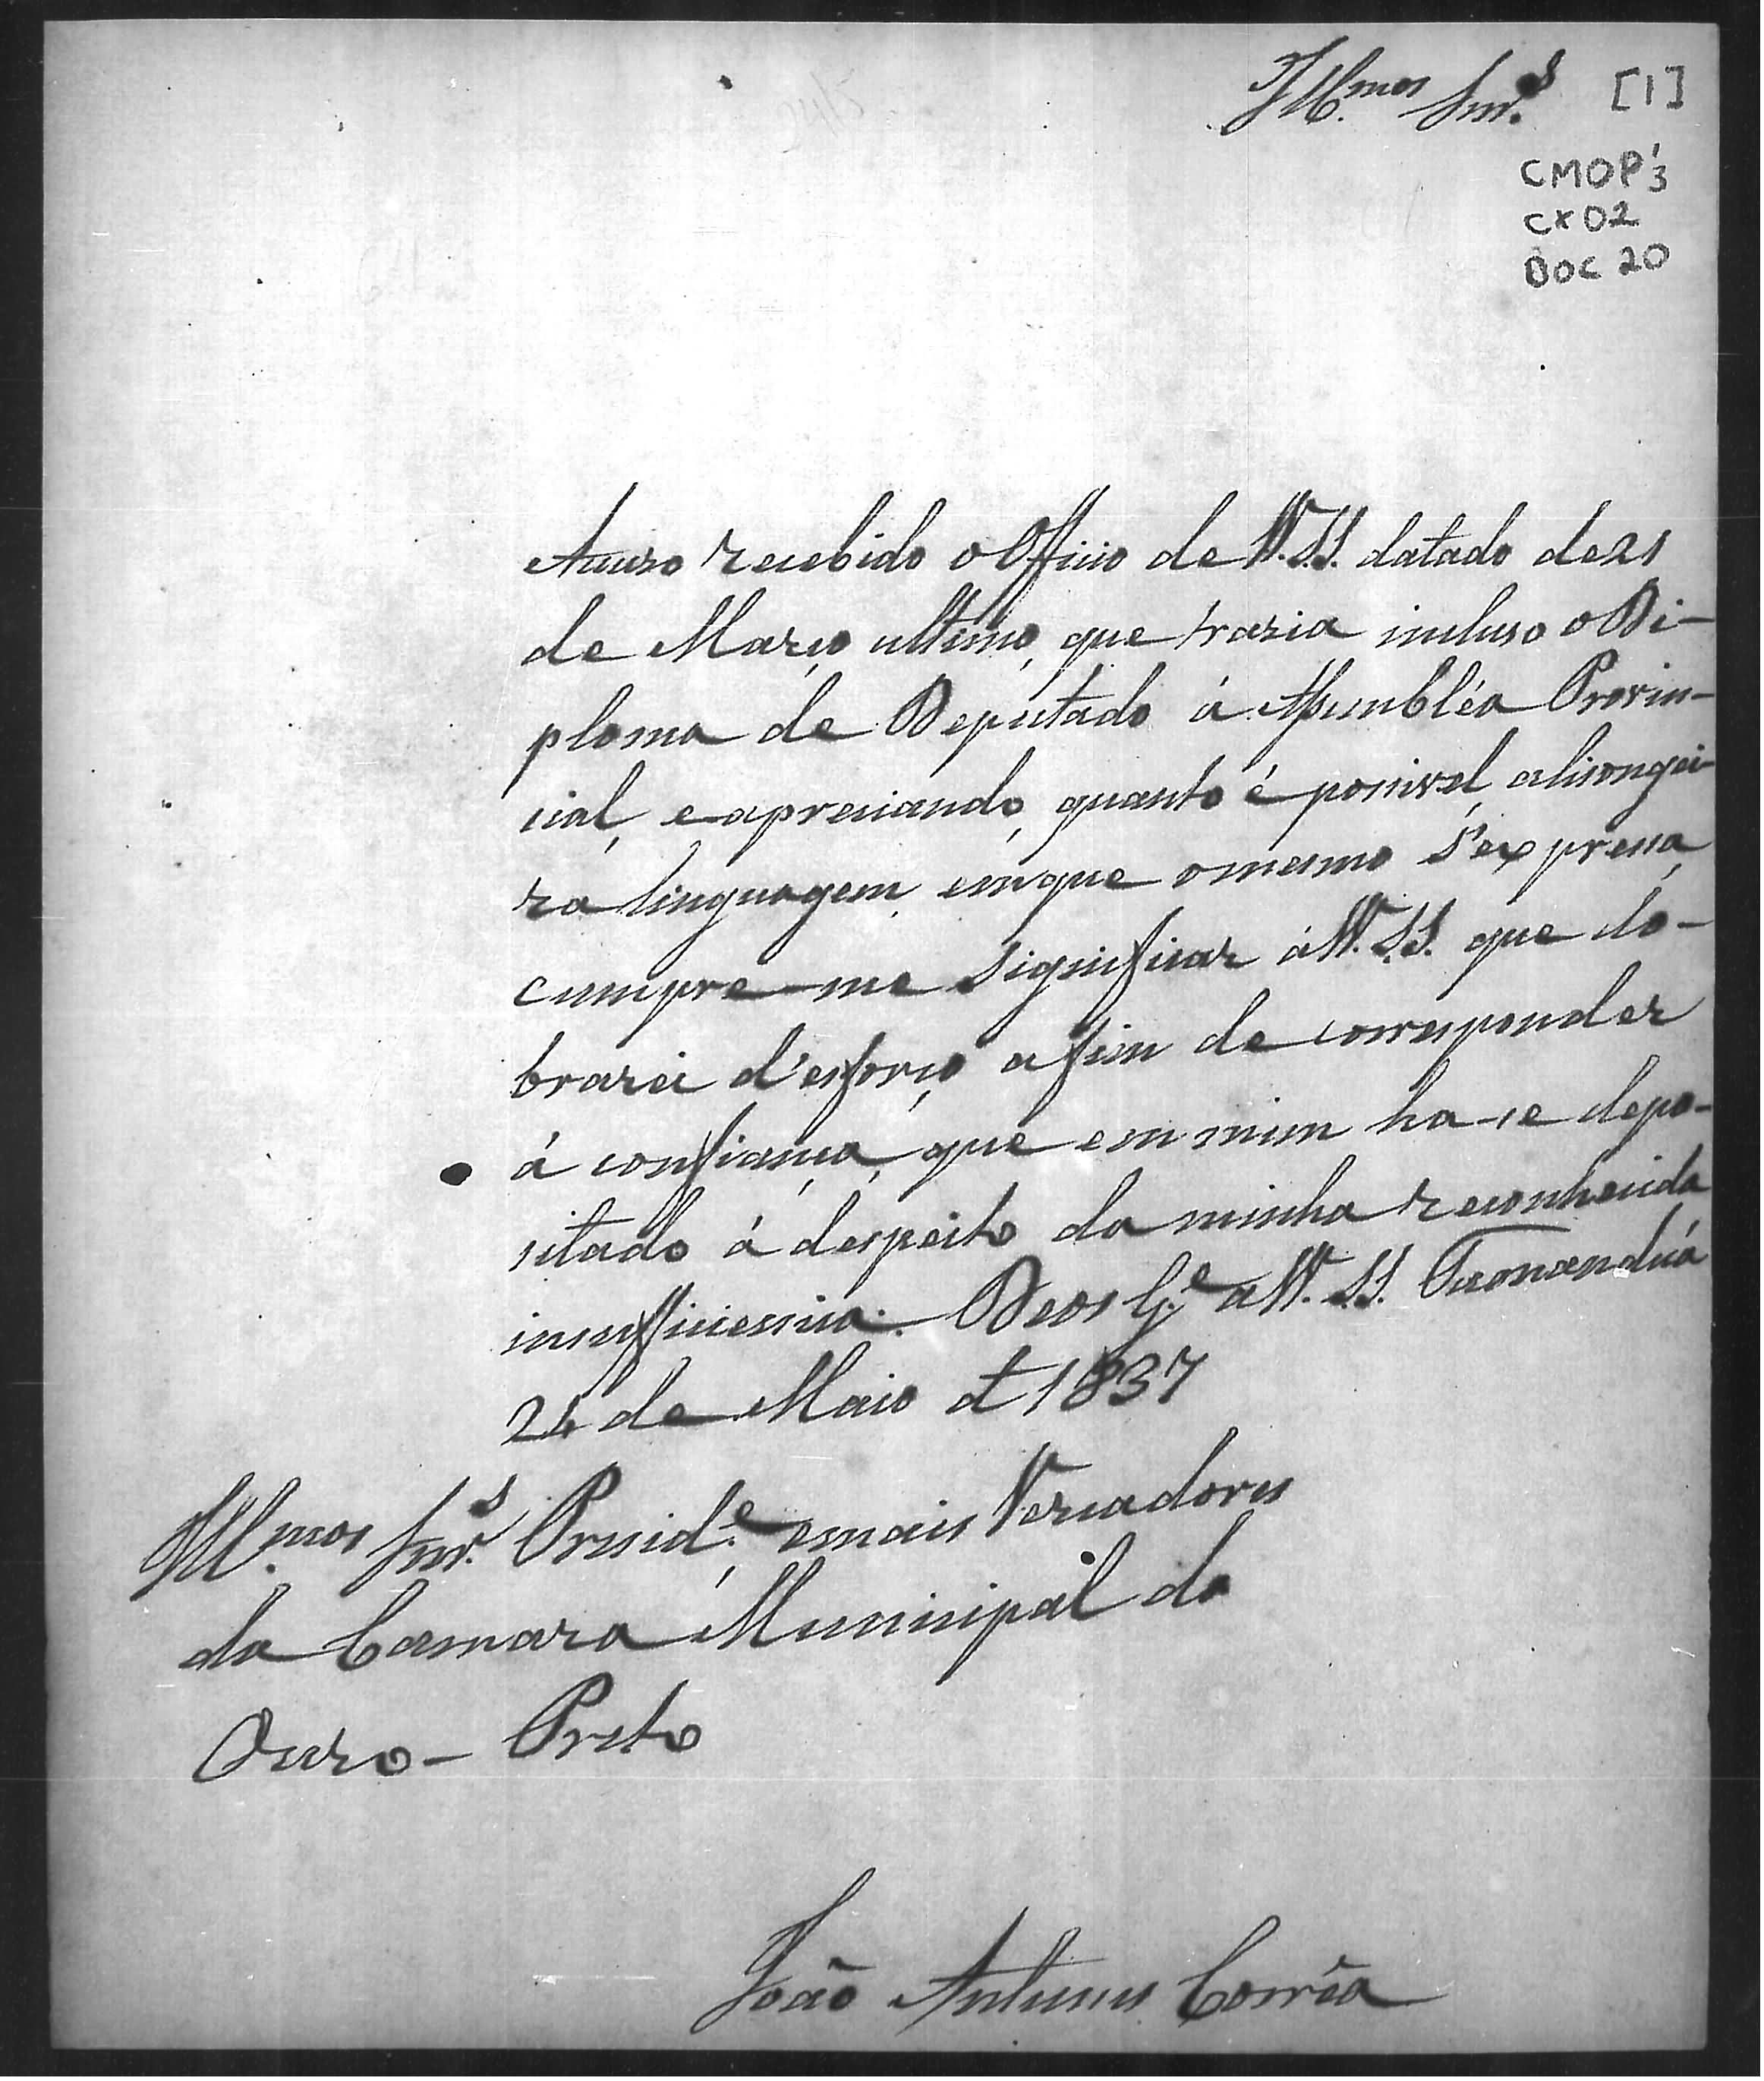 Ill.mos Snr.s [1]
CMOP 1/3
CX 02
DOC 20
Accuso recebido o Officio de V.V.S.S. datado de 21
de Março ultimo, que trazia incluso o Di-
ploma de Deputado á Assembléa Provin-
cial, e apreciando, quanto é possivel, a lisongei-
ra linguagem, em que o mesmo s'expressa,
cumpre-me significar á V.V.S.S. que do-
brarei d'esforço, a fim de corresponder
á confiança, que em mim ha-se depo-
sitado á despeito da minha reconhecida
insufficiencia. Deos G.e a V.V.S.S. Tamanduá
24 de Maio d 1837
Ill.mos Snr.s Presid.e, e mais Vereadores
da Camara Municipal do
Ouro-Preto
João Antunes Corrêa